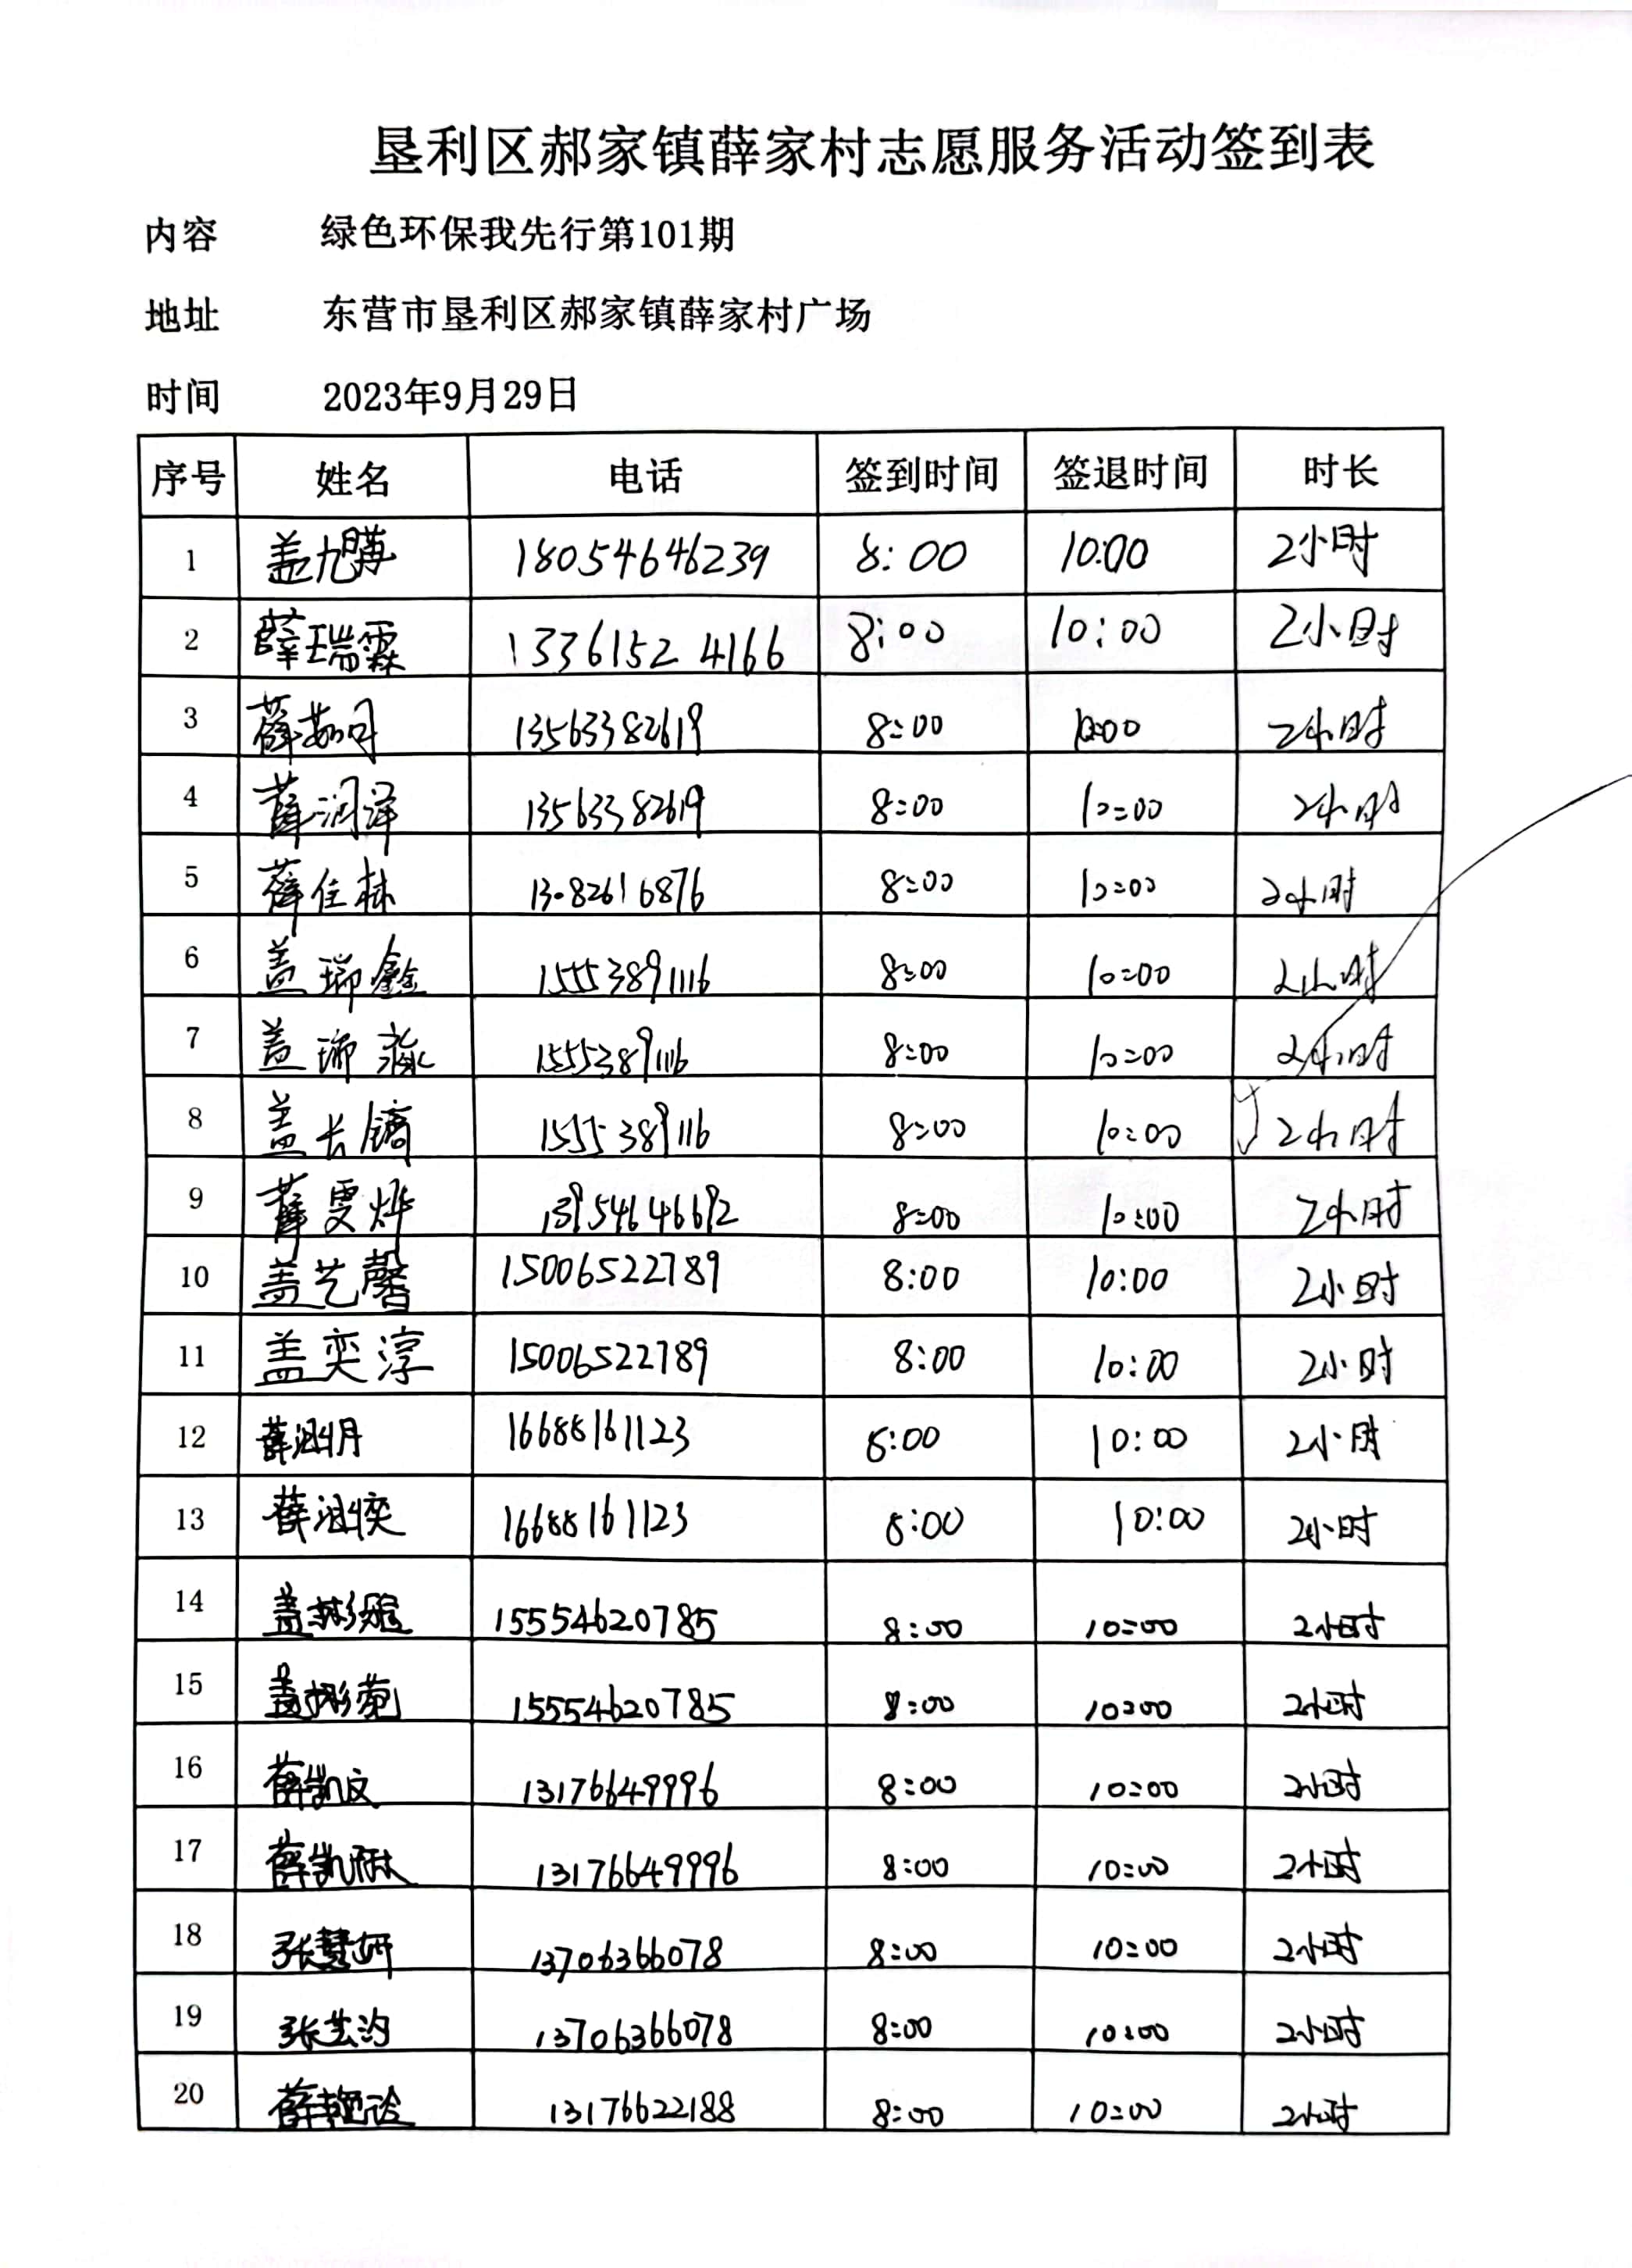 垦利区郝家镇薛家村志愿服务活动签到表
内容 绿色环保我先行第101期
地址 东营市垦利区郝家镇薛家村广场
时间 2023年9月29日
序号 姓名 电话 签到时间 签退时间 时长
1 盖旭 18054646239 8:00 10:00 2小时
2 薛瑞霖 13361524166 8:00 10:00 2小时
3 薛茹月 13563382619 8:00 10:00 2小时
4 薛润泽 13563382619 8:00 10:00 2小时
5 薛佳林 13082616876 8:00 10:00 2小时
6 盖瑞鑫 15553891116 8:00 10:00 2小时
7 盖瑞淼 1555389116 8:00 10:00 2小时
8 盖长镝 1555389116 8:00 10:00 2小时
9 薛雯烨 13954646692 8:00 10:00 2小时
10 盖艺馨 15006522789 8:00 10:00 2小时
11 盖奕淳 15006522789 8:00 10:00 2小时
12 薛涵月 16688161123 8:00 10:00 2小时
13 薛涵奕 16688161123 8:00 10:00 2小时
14 盖彬 15554620785 8:00 10:00 2小时
15 盖彬菀 15554620785 8:00 10:00 2小时
16 薛凯文 13176649996 8:00 10:00 2小时
17 薛凯琳 13176649996 8:00 10:00 2小时
18 张慧妍 13706366078 8:00 10:00 2小时
19 张艺沟 13706366078 8:00 10:00 2小时
20 薛 13176622188 8:00 10:00 2小时